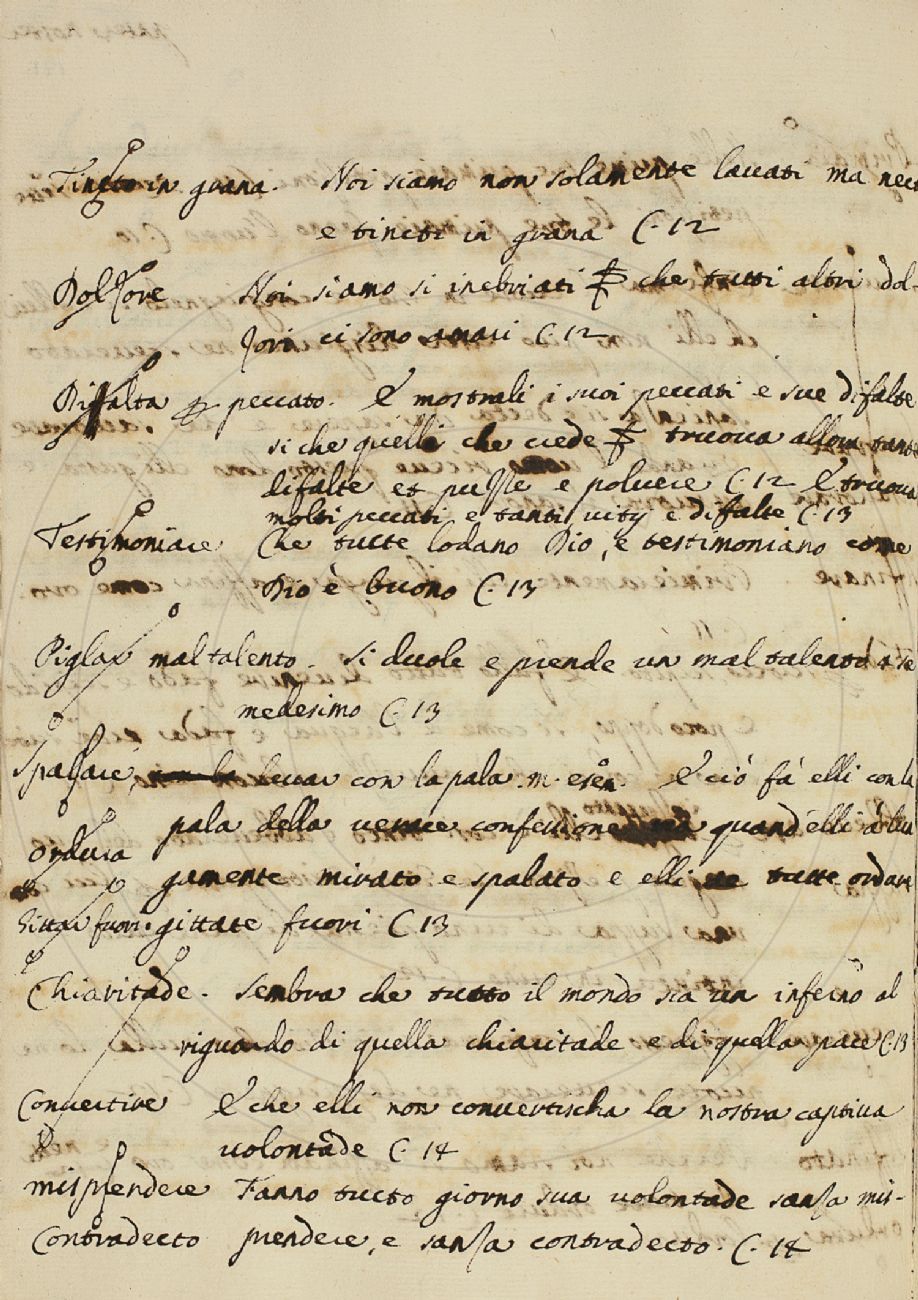 Tincto in grana. Noi siamo non solamente lavati ma nect
e tincti in grana C. 12
Dolzore Noi siamo si inebriati che tutti altri dol-
zori ci sono amari C. 12
Difalta peccato. E mostrali i suoi peccati e sue difalte
si che quelli che crede truova allora tante
difalte et pulle e polvere C. 12 E truova
molti peccati e tanti vitij e difalte C. 13
Testimoniare Che tucte lodano Dio, e testimoniano come
Dio è buono C. 13
Piglar maltalento. Si duole e prende un mal talento a se
medesimo C. 13
Spalare, levar con la pala. E ciò fà elli con la
pala della verace confessione quand'elli à lun
Ordura
gamente mirato e spalato e elli tutte ordure
Gittar fuori. gittate fuori C. 13
Chiaritade. Sembra che tucto il mondo sia un inferno al
riguardo di quella chiaritade e di quella pace C. 13
Convertire E che elli non convertischa la nostra captiva
volontade C. 14
misprendere Fanno tucto giorno sua volontade sanza mis-
Contradecto prendere, e sanza contradecto. C. 14